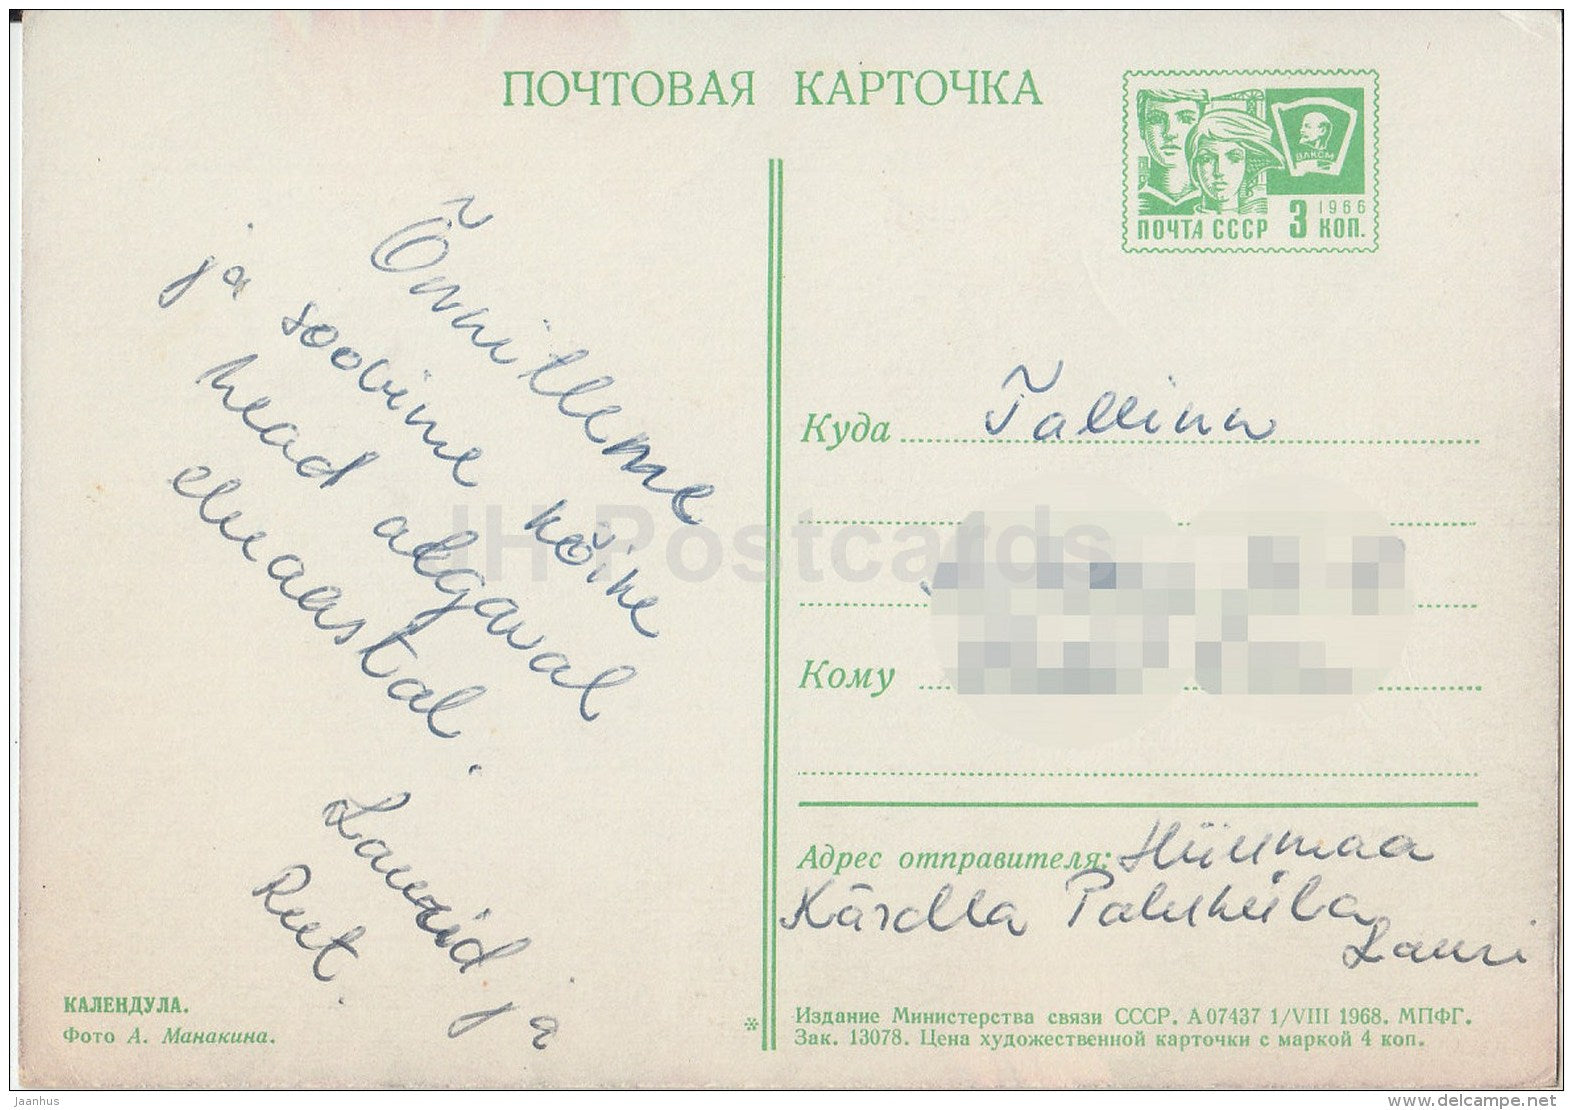 ПОЧТОВАЯ КАРТОЧКА
ВЛКСМ
1966
ПОЧТА СССР 3 КОП.
Õnnitleme
ja soovime kõike
head algaval
eluaastal.
Laurid ja
Reet.
Куда Tallinn
Кому
Адрес отправителя: Hiiumaa
Kärdla
Lauri
КАЛЕНДУЛА.
Фото А. Манакина.
*
Издание Министерства связи СССР. А 07437 1/VIII 1968. МПФГ.
Зак. 13078. Цена художественной карточки с маркой 4 коп.
JH Postcards
Jaanhus
www.delcampe.net